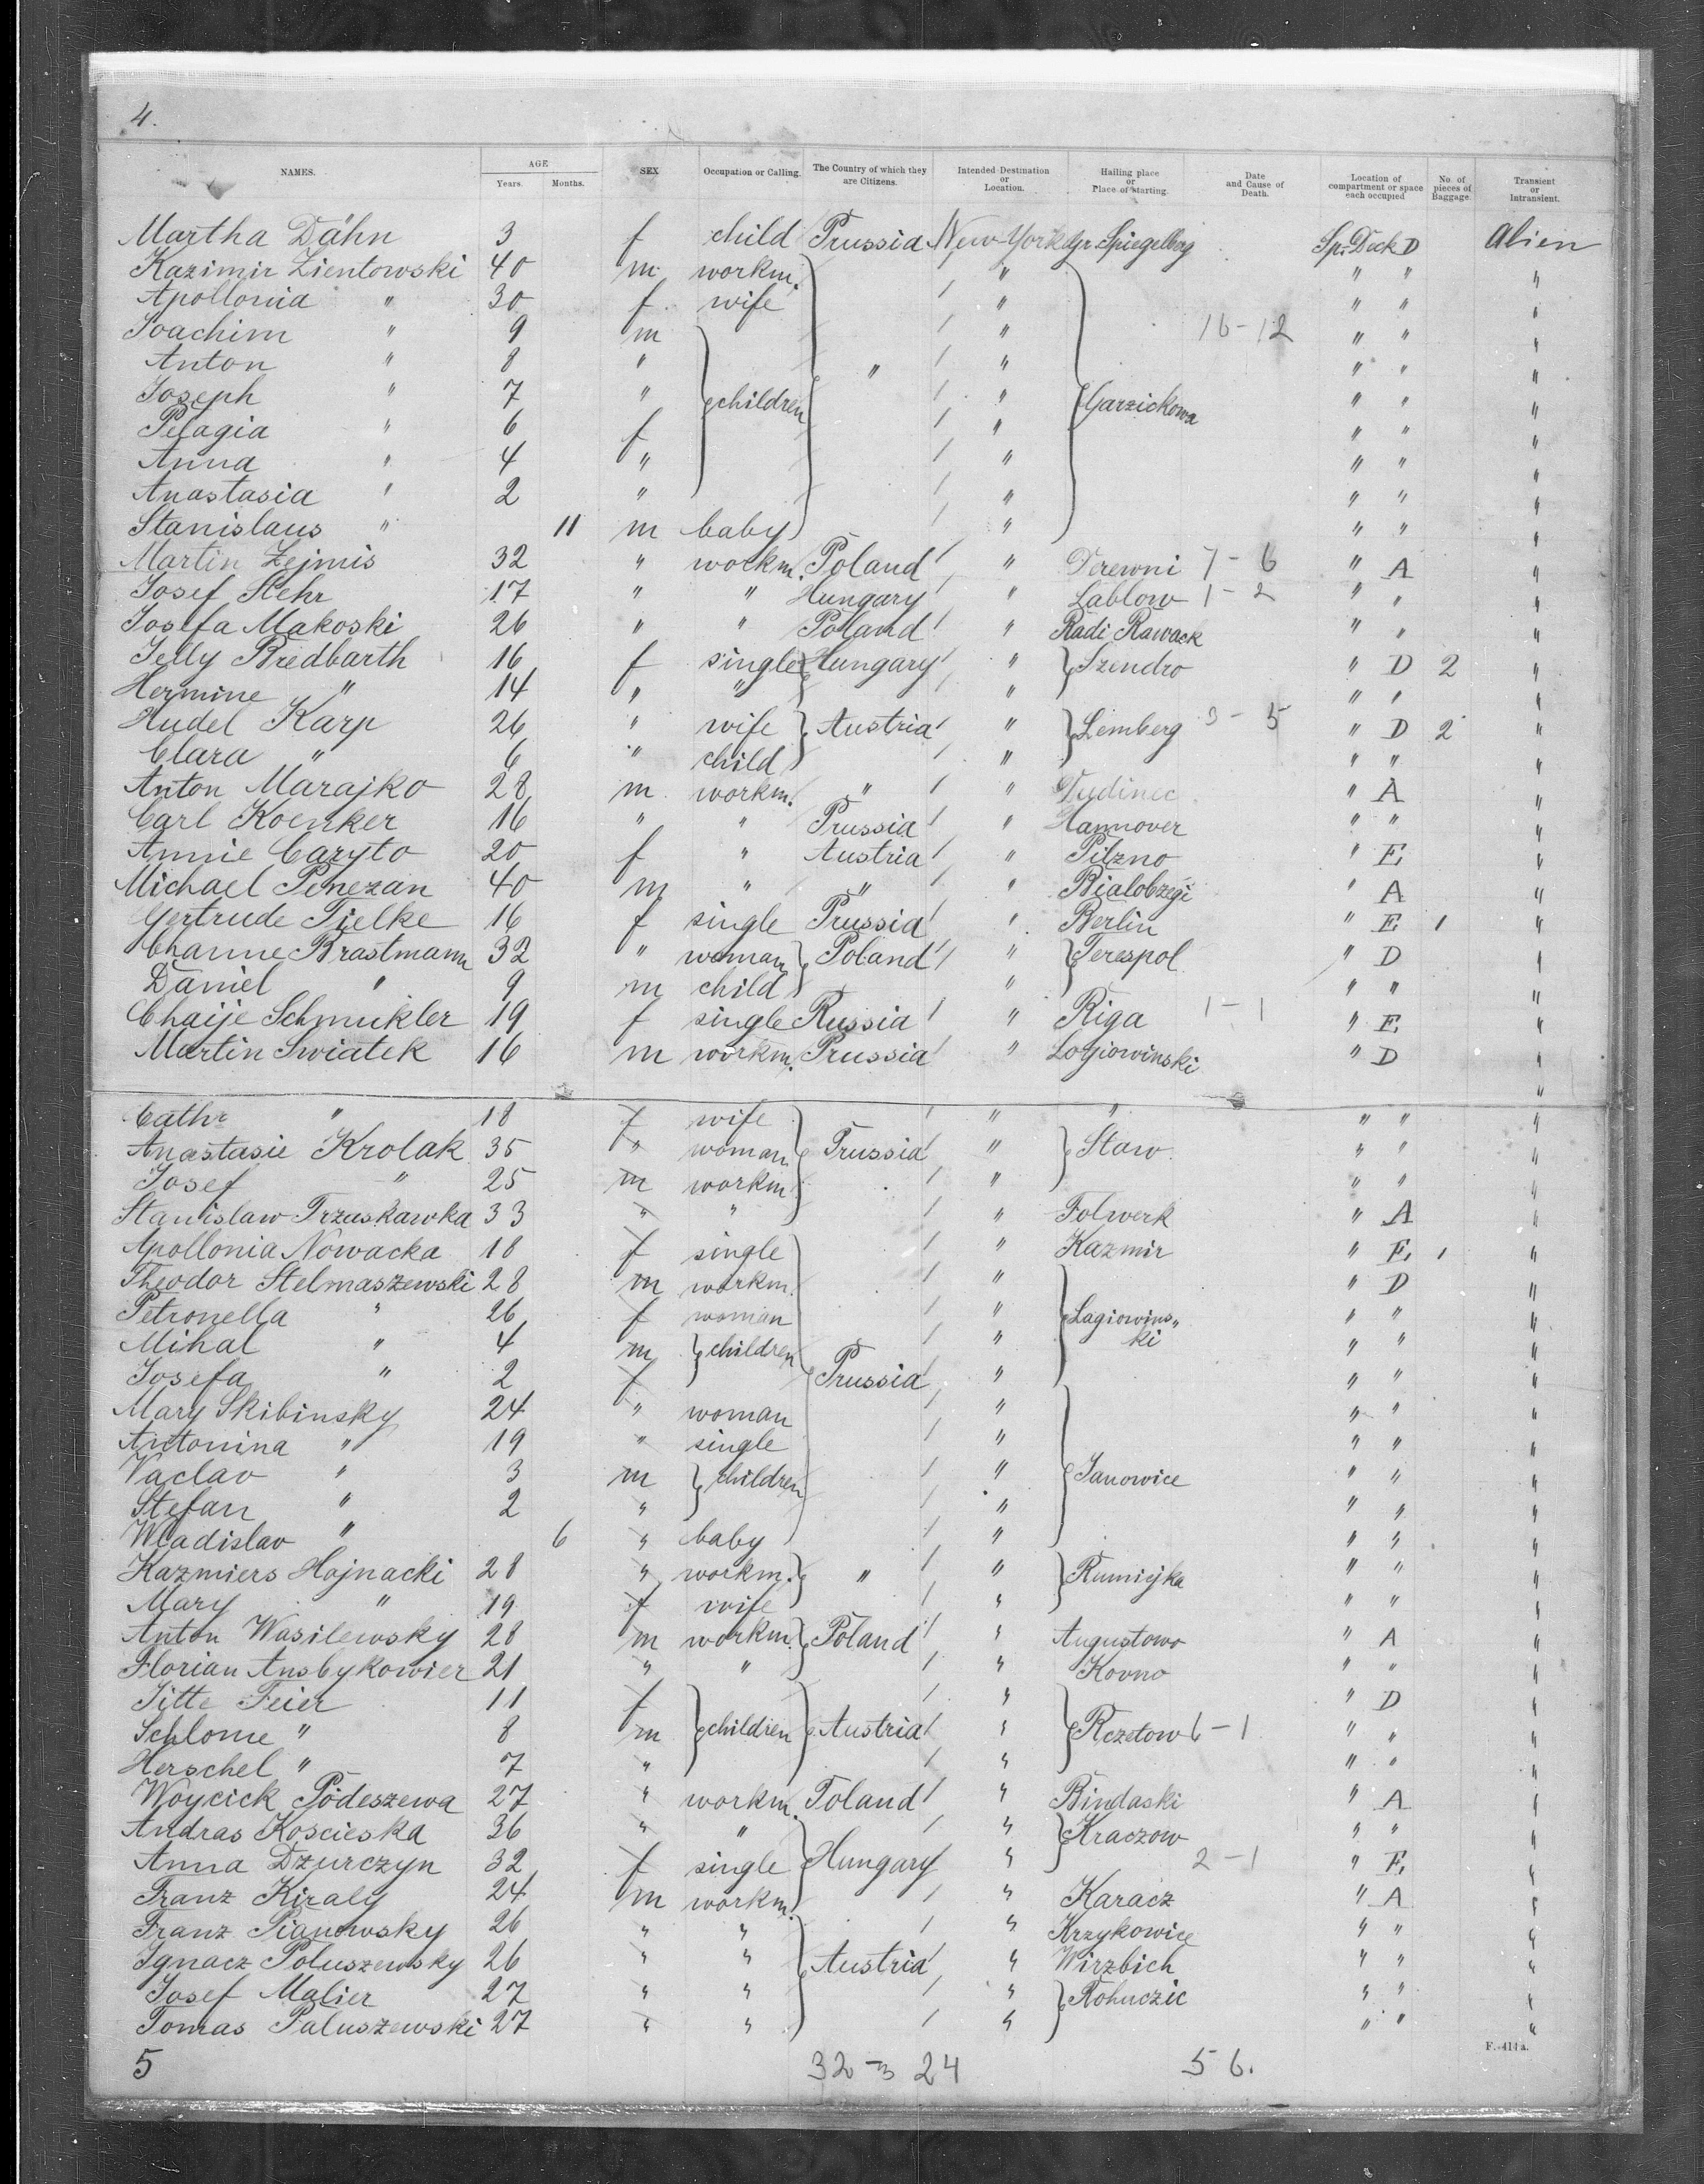 4.
NAMES. AGE Years. Months. SEX Occupation or Calling. The Country of which they are Citizens. Intended Destination or Location. Hailing place or Place of starting. Date and Cause of Death. Location of compartment or space each occupied No. of pieces of Baggage. Transient or Intransient.
Martha Dähn 3 f child Prussia New York Gr. Spiegelberg Sp. Deck D Alien
Kazimir Zientowski 40 m workm. " " " "
Apollonia " 30 f. wife " " " "
Joachim " 9 m " 16-12 " " "
Anton " 8 " " " " " "
Joseph " 7 " children " Garzickowa " " "
Pelagia " 6 f " " " "
Anna " 4 " " " " "
Anastasia " 2 " " " " "
Stanislaus " 11 m baby " " " "
Martin Zejmis 32 " workm. Poland " Derewni 7-6 " A "
Josef Stehr 17 " " Hungary " Lablow 1-2 " " "
Josefa Makoski 26 " " Poland " Radi Rawack " " "
Jelly Bredbarth 16 f single Hungary " Szendro " D 2 "
Hermine " 14 " " " " " "
Hudel Karp 26 " wife Austria " Lemberg 3-5 " D 2 "
Clara " 6 " child " " " "
Anton Marajko 28 m workm. " " Dudinec " A "
Carl Koenker 16 " " Prussia " Hannover " " "
Annie Caryto 20 f " Austria " Pilzno " E "
Michael Penezan 40 m " " " Bialobzegi " A "
Gertrude Tielke 16 f single Prussia " Berlin " E 1 "
Channe Brastmann 32 " woman Poland " Terespol " D "
Daniel " 9 m child " " " "
Chaije Schmukler 19 f single Russia " Riga 1-1 " E "
Martin Swiatek 16 m workm. Prussia " Logiowinski " D "
Cathr " 18 f wife " " " " "
Anastasie Krolak 35 " woman Prussia " Staw " " "
Josef " 25 m workm " " " "
Stanislaw Trzaskawka 33 " " " Folwerk " A "
Apollonia Nowacka 18 f single " Kazmir " E 1 "
Theodor Stelmaszewski 28 m workm. " " D "
Petronella " 26 f woman " Lagiowins„ " " "
Mihal " 4 m children " ki " " "
Josefa " 2 f Prussia " " " "
Mary Skibinsky 24 " woman " " " "
Antonina " 19 " single " " " "
Vaclav " 3 m children " Janowice " " "
Stefan " 2 " " " " "
Wladislav " 6 " baby " " " "
Kazmiers Hojnacki 28 " workm. " " Rumiejka " " "
Mary " 19 f wife " " " "
Anton Wasilewsky 28 m workm. Poland " Augustowo " A "
Florian Ansbykowier 21 " " " Kovno " " "
Jitte Feier 11 f " " D "
Schlome " 8 m children Austria " Rczetow 6-1 " " "
Herschel " 7 " " " " "
Woycick Podeszewa 27 " workm. Poland " Bindaski " A "
Andras Koscieska 36 " " " Kraczow " " "
Anna Dzurczyn 32 f single Hungary " 2-1 " E "
Franz Kiraly 24 m workm. " Karacz " A "
Franz Pianowsky 26 " " " Krzykowice " " "
Ignacz Poluszewsky 26 " " Austria " Wirzbich " " "
Josef Malier 27 " " " Rohuczic " " "
Tomas Paluszewski 27 " " " " " "
F.-414a.
5 32-24 56.